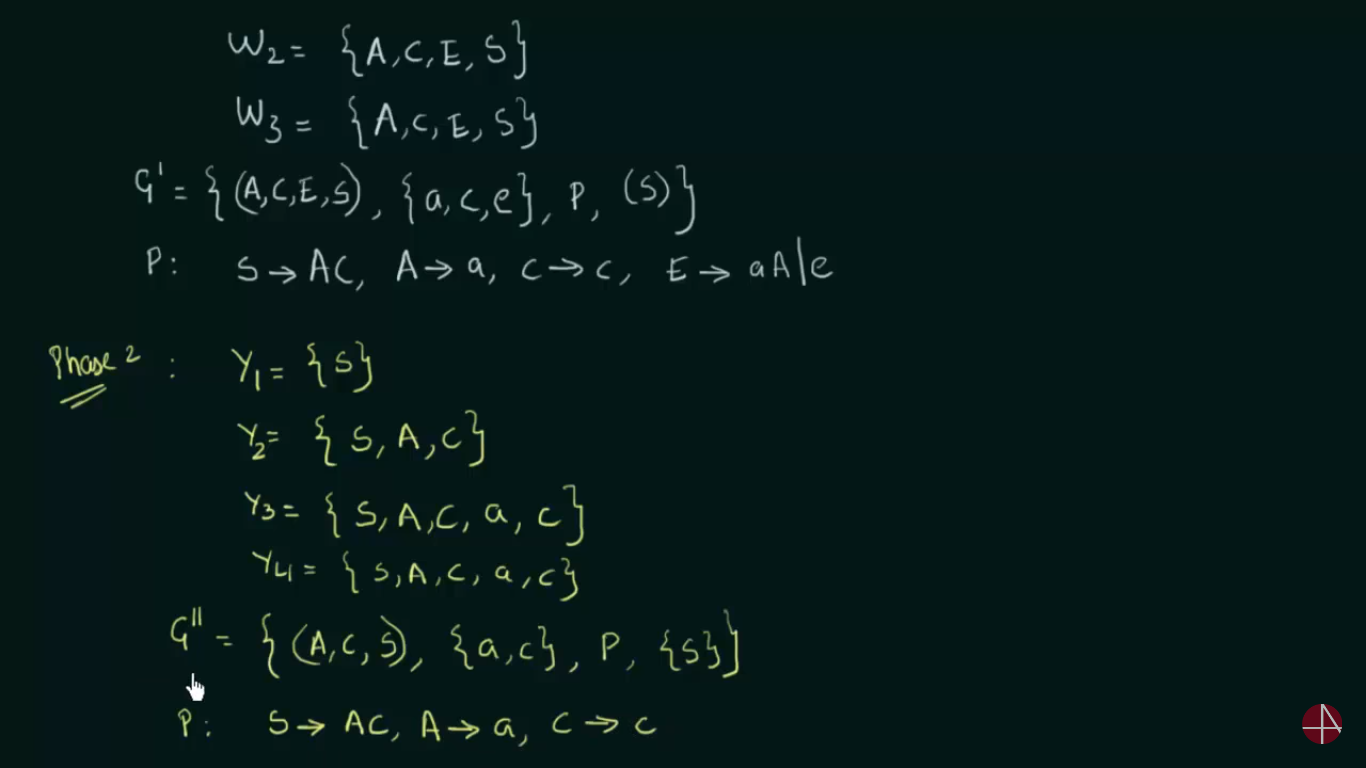 W₂ = {A, C, E, S}
W₃ = {A, C, E, S}
G' = {(A, C, E, S), {a, c, e}, P, (S)}
P: S → AC, A → a, C → c, E → aA|e
Phase 2 : Y₁ = {S}
Y₂ = {S, A, C}
Y₃ = {S, A, C, a, c}
Y₄ = {S, A, C, a, c}
G'' = {(A, C, S), {a, c}, P, {S}}
P: S → AC, A → a, C → c